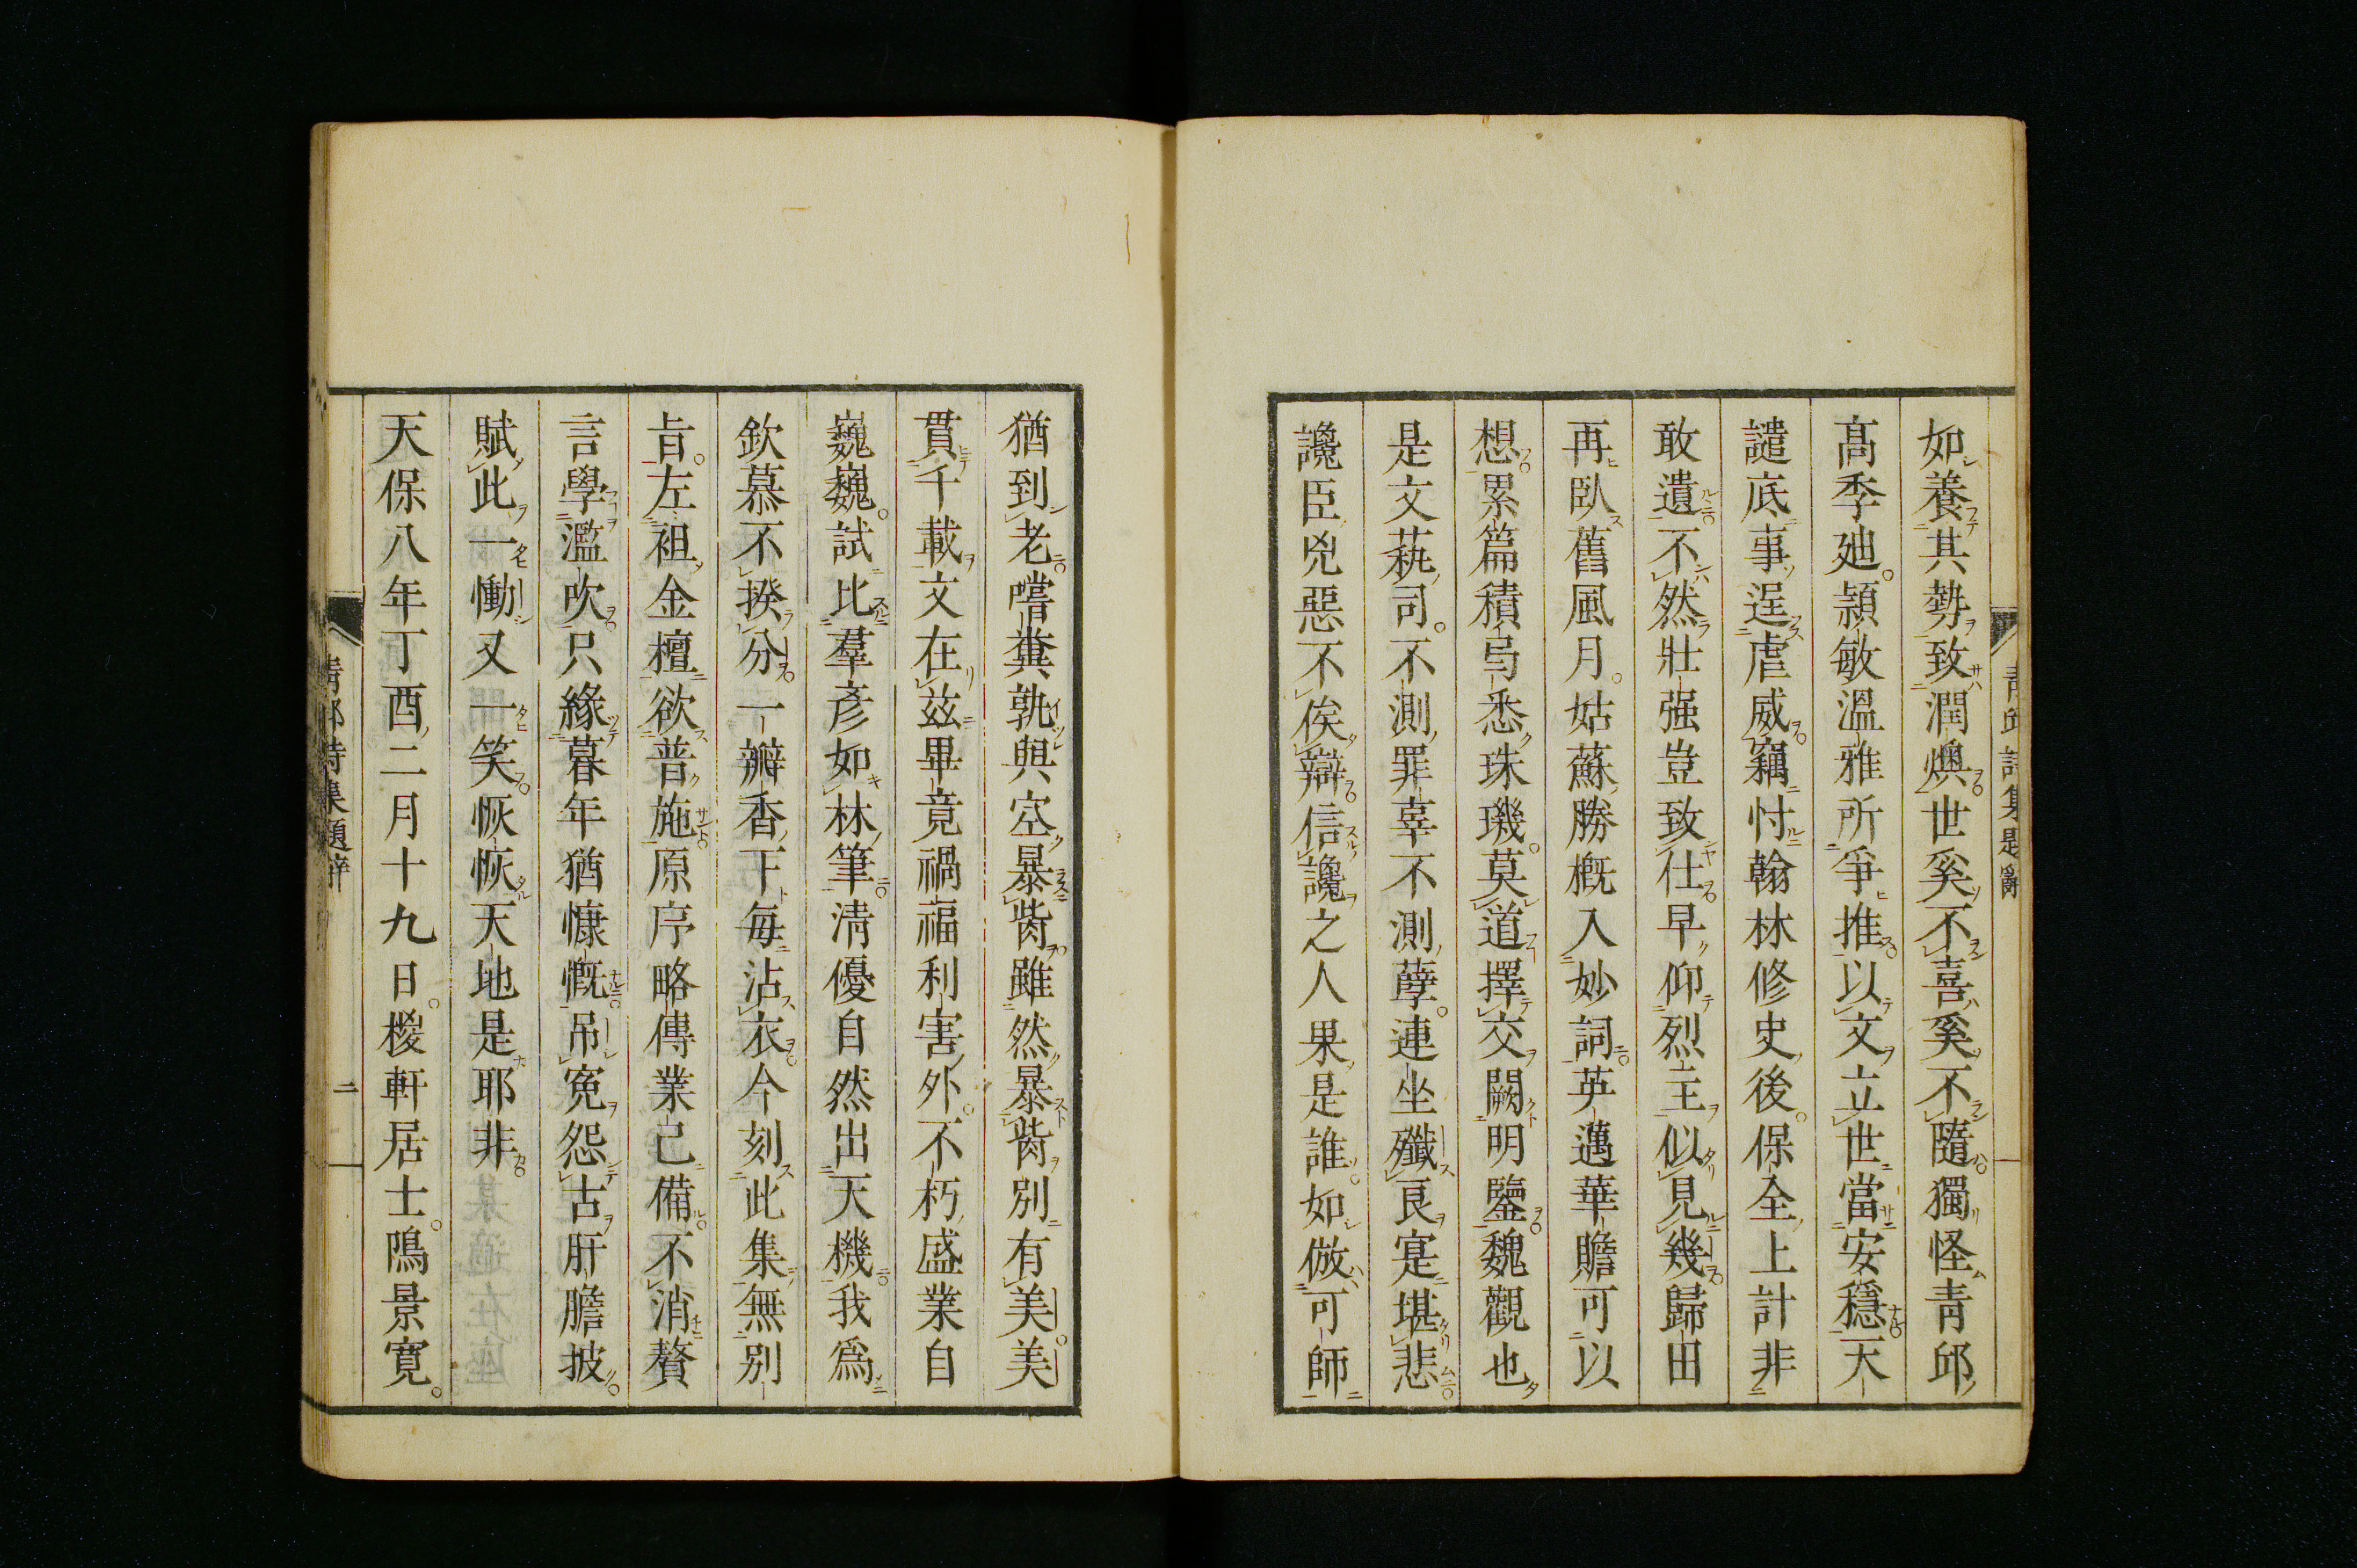 如養其勢致潤燠世奚不喜奚不隨獨怪青邱
高季迪頴敏溫雅所爭推以文立世當安穩天
譴底事逞虐威竊忖翰林修史後保全上計非
敢遺不然壯强豈致仕早仰烈主似見幾歸田
再臥舊風月姑蘇勝槪入妙詞英邁華贍可以
想累篇積㢧悉珠璣莫道擇交闕明鑒魏觀也
是文蓺司不測罪辜不測孽連坐殲良寔堪悲
讒臣兇惡不俟辯信讒之人果是誰如倣可師
猶到老嚐糞孰與空暴胔雖然暴胔別有美美
貫千載文在玆畢竟禍福利害外不朽盛業自
巍巍試比羣彥如林筆淸優自然出天機我爲
欽慕不揆分一瓣香下每沾衣今刻此集無別
旨左袒金檀欲普施原序略傳業已備不消贅
言學濫吹只緣暮年猶慷慨吊寃怨古肝膽披
賦此一慟又一笑恢恢天地是耶非
天保八年丁酉二月十九日椶軒居士隝景寬
靑邱詩集題辭
二